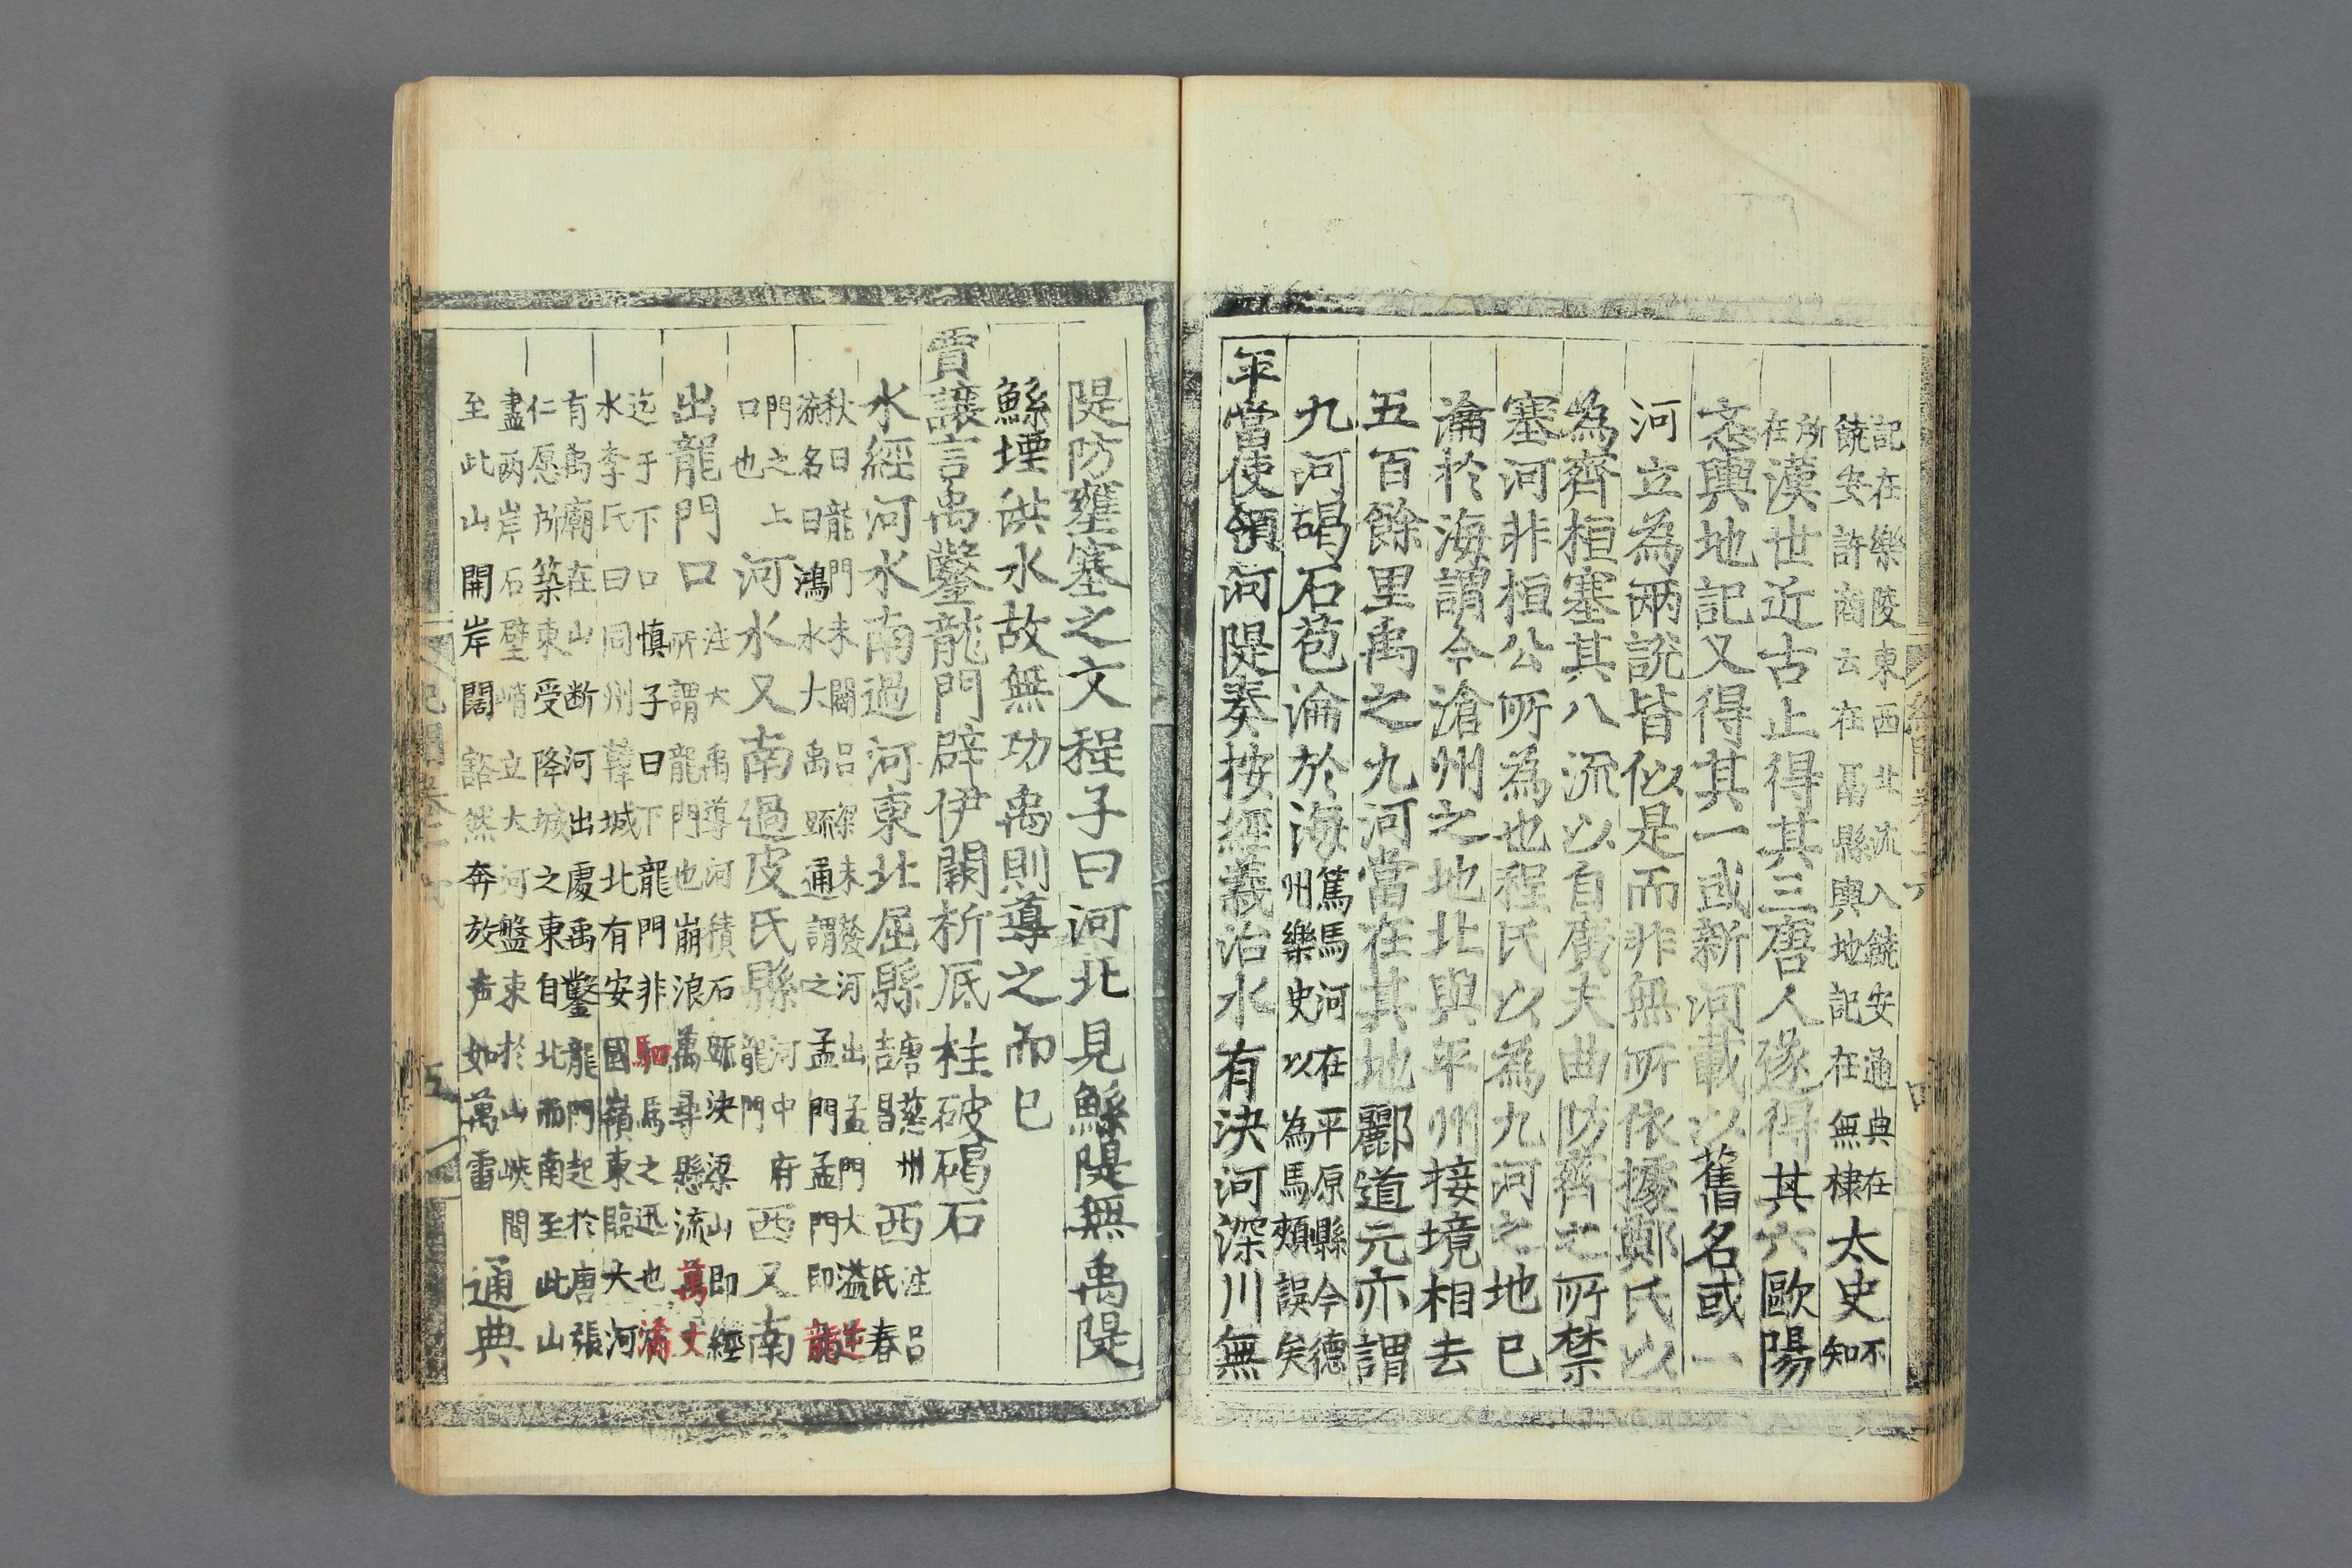 記在樂陵東西北流入饒安通典在
饒安許商云在鬲縣輿地記在無棣
太史
不
知
所
在
漢世近古止得其三唐人遂得其六歐陽
忞輿地記又得其一或新河載以舊名或一
河立為兩說皆似是而非無所依據鄭氏以
為齊桓塞其八流以自廣夫曲防齊之所禁
塞河非桓公所為也程氏以為九河之地已
淪於海謂今滄州之地北與平州接境相去
五百餘里禹之九河當在其地酈道元亦謂
九河碣石苞淪於海
篤馬河在平原縣今德
州樂史以為馬頰誤矣
平當使領河隄奏按經義治水有決河深川無
隄防壅塞之文程子曰河北見鯀隄無禹隄
鯀堙洪水故無功禹則導之而已
賈讓言禹鑿龍門辟伊闕析厎柱破碣石
水經河水南過河東北屈縣
唐慈州
吉昌
西
注呂
氏春
秋曰龍門未闢呂梁未發河出孟門大溢逆
流名曰鴻水大禹疏通謂之孟門孟門即龍
門之上
口也
河水又南過皮氏縣
河中府
龍門
西又南
出龍門口
注大禹導河積石疏決梁山即經
所謂龍門也崩浪萬尋懸流萬丈
迄于下口慎子曰下龍門非駟馬之迅也
水李氏曰同州韓城北有安國嶺東臨大河
有禹廟在山断河出處禹鑿龍門起於唐張
仁愿所築東受降城之東自北而南至此山
盡兩岸石壁峭立大河盤束於山峽間
至此山開岸闊豁然奔放声如萬雷
通典